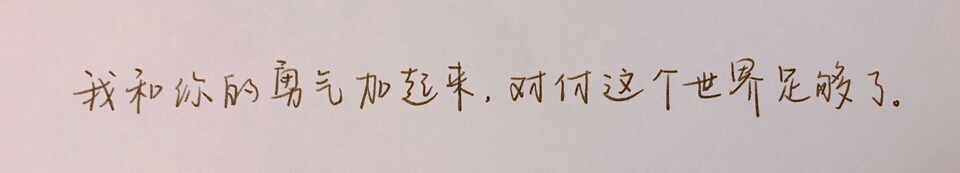 我和你的勇气加起来,对付这个世界足够了。